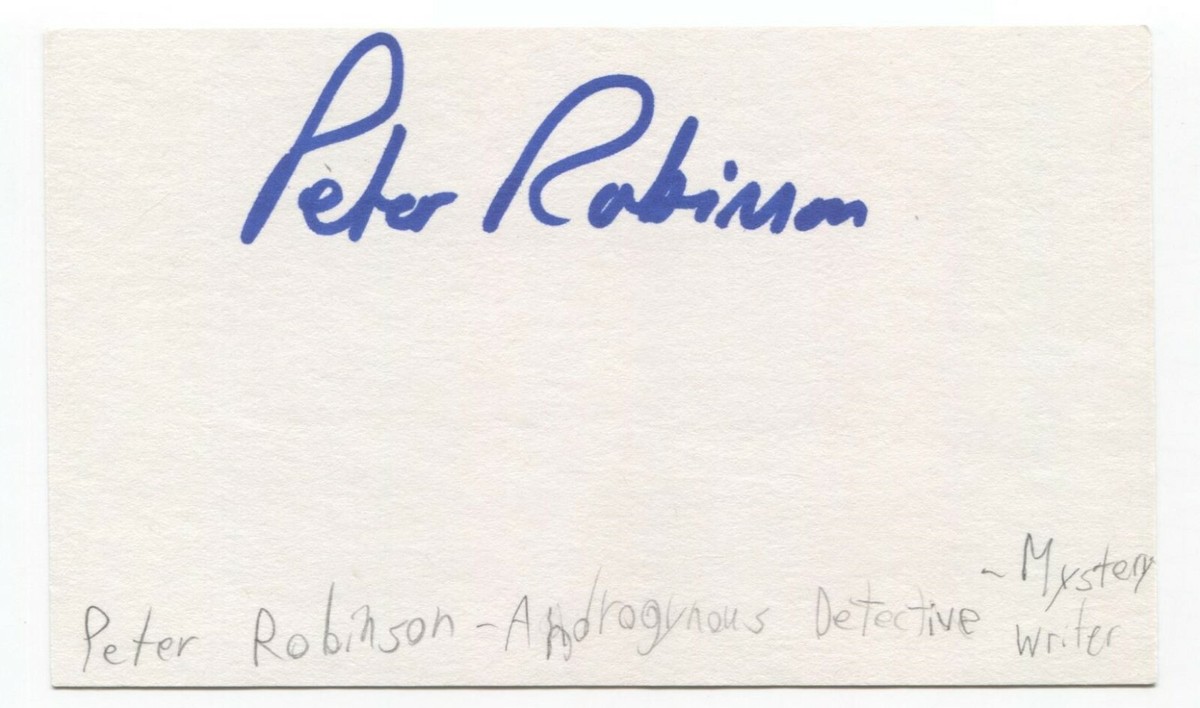 Peter Robinson
Peter Robinson - Androgynous Detective - Mystery
Writer